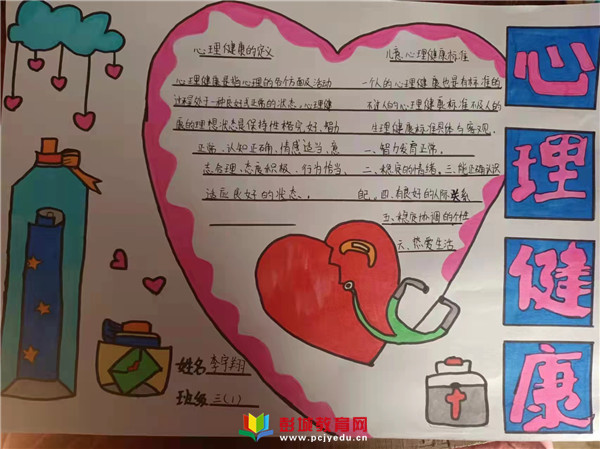 心理健康的定义
心理健康是指心理的各个方面及活动
过程处于一种良好或正常的状态。心理健
康的理想状态是保持性格完好、智力
正常、认知正确、情感适当、意
志合理、态度积极、行为恰当、
适应良好的状态。
儿童心理健康标准
一个人的心理健康也是有标准的
不过人的心理健康标准不及人的
生理健康标准具体与客观。
一、智力发育正常。
二、稳定的情绪。三、能正确认识
自己。四、有良好的人际关系
五、稳定协调的个性
六、热爱生活
心
理
健
康
姓名 李宇翔
班级 三(1)
彭城教育网
www.pcjyedu.cn